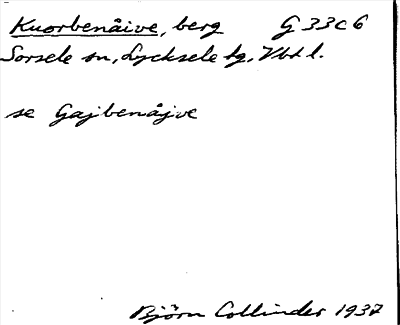 Kuorbenåive, berg G 33 c 6
Sorsele sn, Lycksele tg, Vbtl.
se Gajbenåjve
Björn Collinder 1937